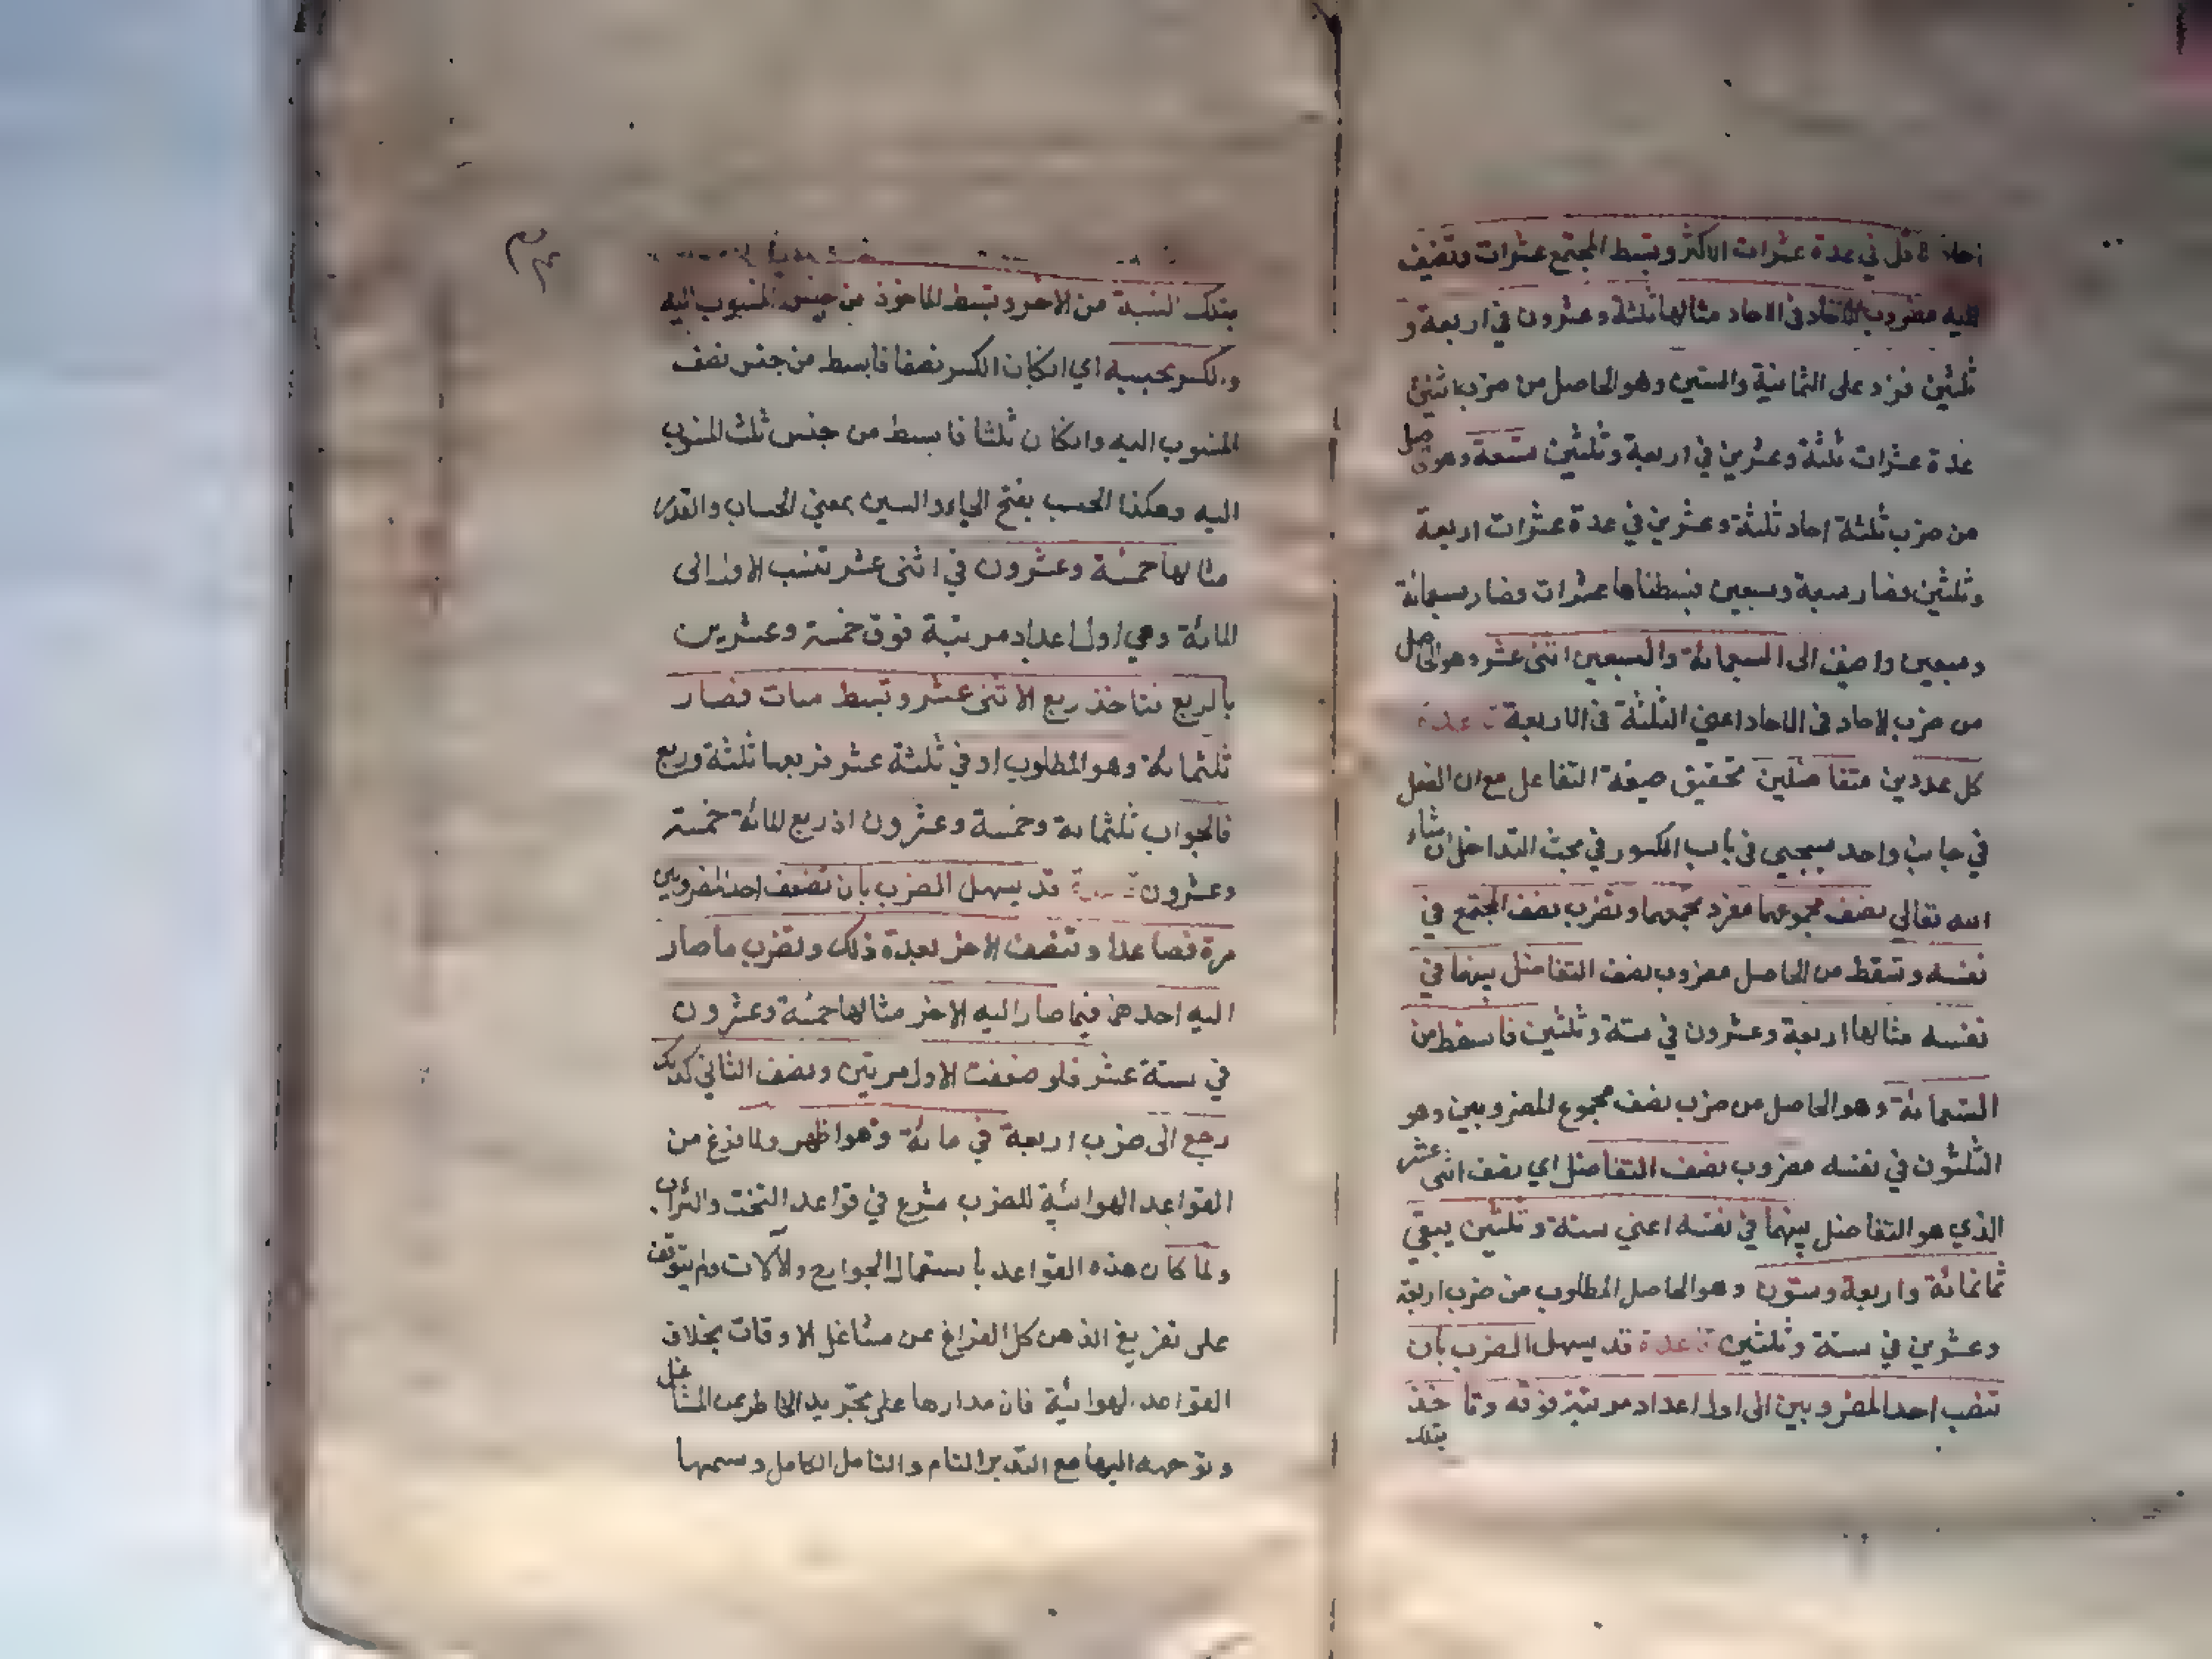 احاد الاقل في عدة عشرات الاكثر وتبسط المجتمع عشرات وتضيف
اليه مضروب الاحاد في الاحاد مثالها ثلثة وعشرون في اربعة و
ثلثين فزد على الثمانية والستين وهو الحاصل من ضرب اثنين
عدة عشرات ثلثة وعشرين في اربعة وثلثين تسعة وهو الحاصل
من ضرب ثلثة احاد ثلثة وعشرين في عدة عشرات اربعة
وثلثين فصار سبعة وسبعين فبسطناها عشرات فصار سبعمائة
وسبعين واضيف الى السبعمائة والسبعين اثنى عشر وهو الحاصل
من ضرب الاحاد في الاحاد اعني الثلثة في الاربعة قاعدة
كل عددين متفاضلين تحقيق صيغة التفاعل مع ان الفضل
في جانب واحد سيجيى في باب الكسور في مبحث التداخل ان شاء
الله تعالى نصف مجموعهما مفرد تجمعهما وتضرب نصف المجتمع في
نفسه وتسقط من الحاصل مضروب نصف التفاضل بينهما في
نفسه مثالها اربعة وعشرون في ستة وثلثين فاسقط من
التسعمائة وهو الحاصل من ضرب نصف مجموع المضروبين وهو
الثلثون في نفسه مضروب نصف التفاضل اي نصف اثنى عشر
الذي هو التفاضل بينهما في نفسه اعني ستة وثلثين يبقى
ثمانمائة واربعة وستون وهو الحاصل المطلوب من ضرب اربعة
وعشرين في ستة وثلثين قاعدة قد يسهل الضرب بان
تنسب احد المضروبين الى اول اعداد مرتبة فوقه وتاخذ
بتلك
بتلك النسبة من الاخر وتبسط الماخوذ من جنس المنسوب اليه
والكسر بحسبه اي ان كان الكسر نصفا فابسط من جنس نصف
المنسوب اليه وان كان ثلثا فابسط من جنس ثلث المنسوب
اليه وهكذا الحسب بفتح الحاء والسين بمعنى الحساب والقدر
مثالها خمسة وعشرون في اثنى عشر تنسب الاول الى
المائة وهي اول اعداد مرتبة فوق خمسة وعشرين
بالربع فتاخذ ربع الاثنى عشر وتبسط مئات فصار
ثلثمائة وهو المطلوب او في ثلثة عشر فربعها ثلثة وربع
فالجواب ثلثمائة وخمسة وعشرون اذ ربع المائة خمسة
وعشرون قاعدة قد يسهل الضرب بان تضعف احد المضروبين
مرة فصاعدا وتنصف الاخر بعدة ذلك وتضرب ما صار
اليه احدهما فيما صار اليه الاخر مثالها خمسة وعشرون
في ستة عشر فلو ضعفت الاول مرتين ونصف الثاني كذلك
رجع الى ضرب اربعة في مائة وهو اظهر ولما فرغ من
القواعد الهوائية للضرب شرع في قواعد التخت والتراب
ولما كان هذه القواعد باستعمال الجوارح والآلات ولم يتوقف
على تفريغ الذهن كل الفراغ عن مشاغل الاوقات بخلاف
القواعد الهوائية فان مدارها على تجريد الخاطر عن المشاغل
وتوجهه اليها مع التدبر التام والتامل الكامل وسمها